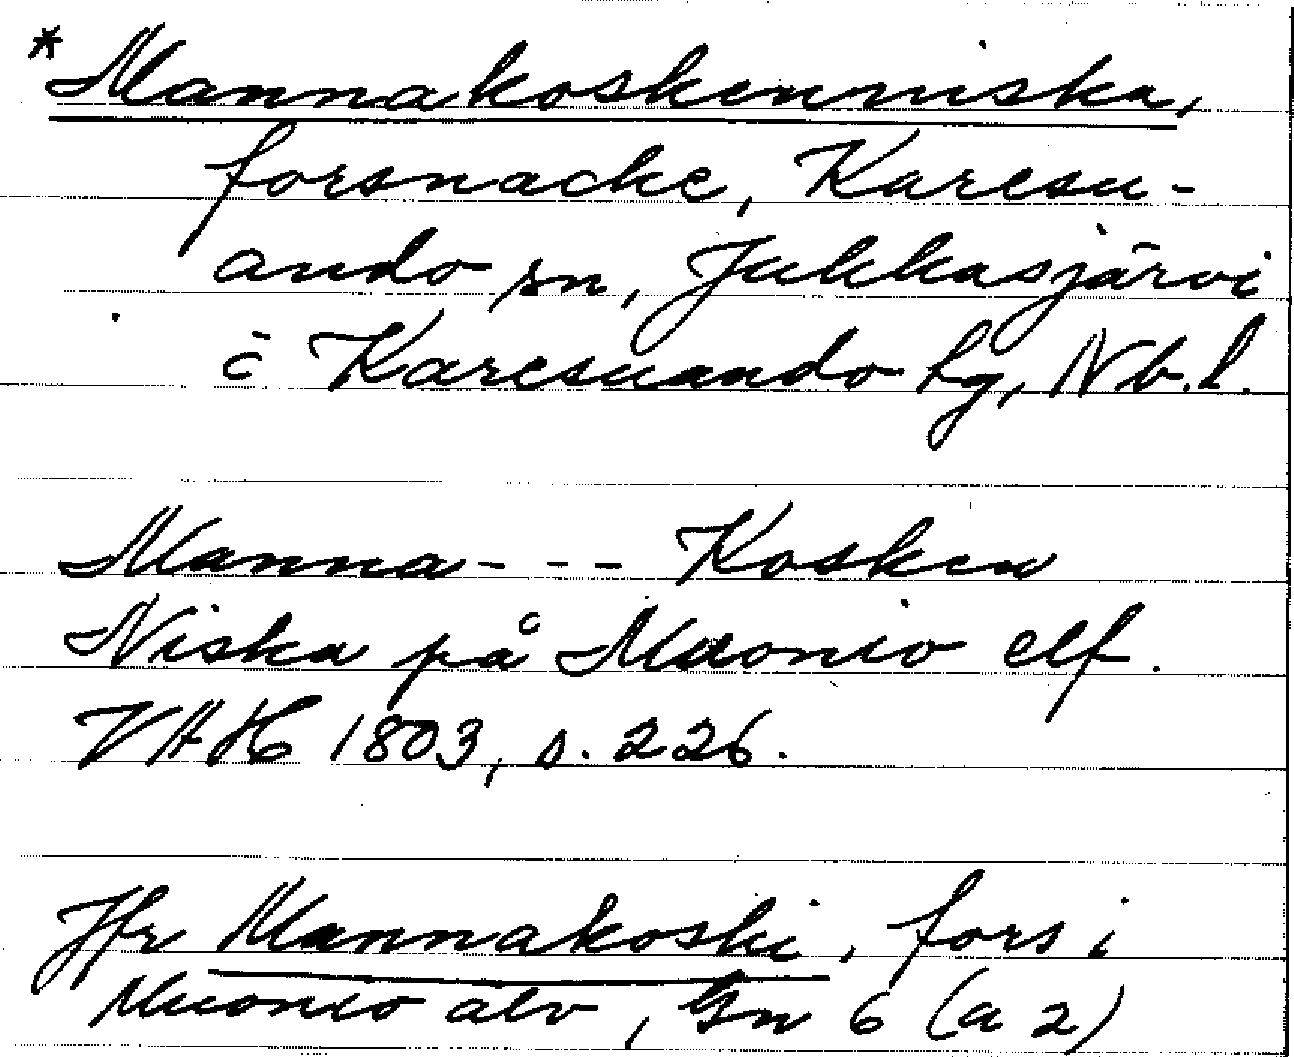 *Mannakoskenniska,
forsnacke, Karesu-
ando sn, Jukkasjärvi
o Karesuando lg, Nb.l.
Manna - - - Kosken
Niska på Muonio elf.
VAH 1803, s. 226.
Jfr Mannakoski, fors i
Muonio älv, Gn 6 (a 2)